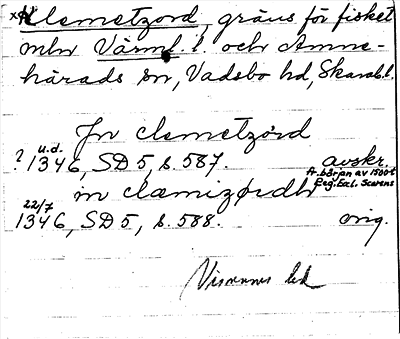 x Clemetzord, gräns för fisket
mln Värml. l. och Amne-
härads sn, Vadsbo hd, Skarab. l.
Jn clemetzørd
? u.d. 1346, SD 5, s. 587. avskr.
fr. början av 1500t
Reg. Eccl. Scarens
in clæmizørdh
22/7 1346, SD 5, s. 588. orig.
Visnums hd